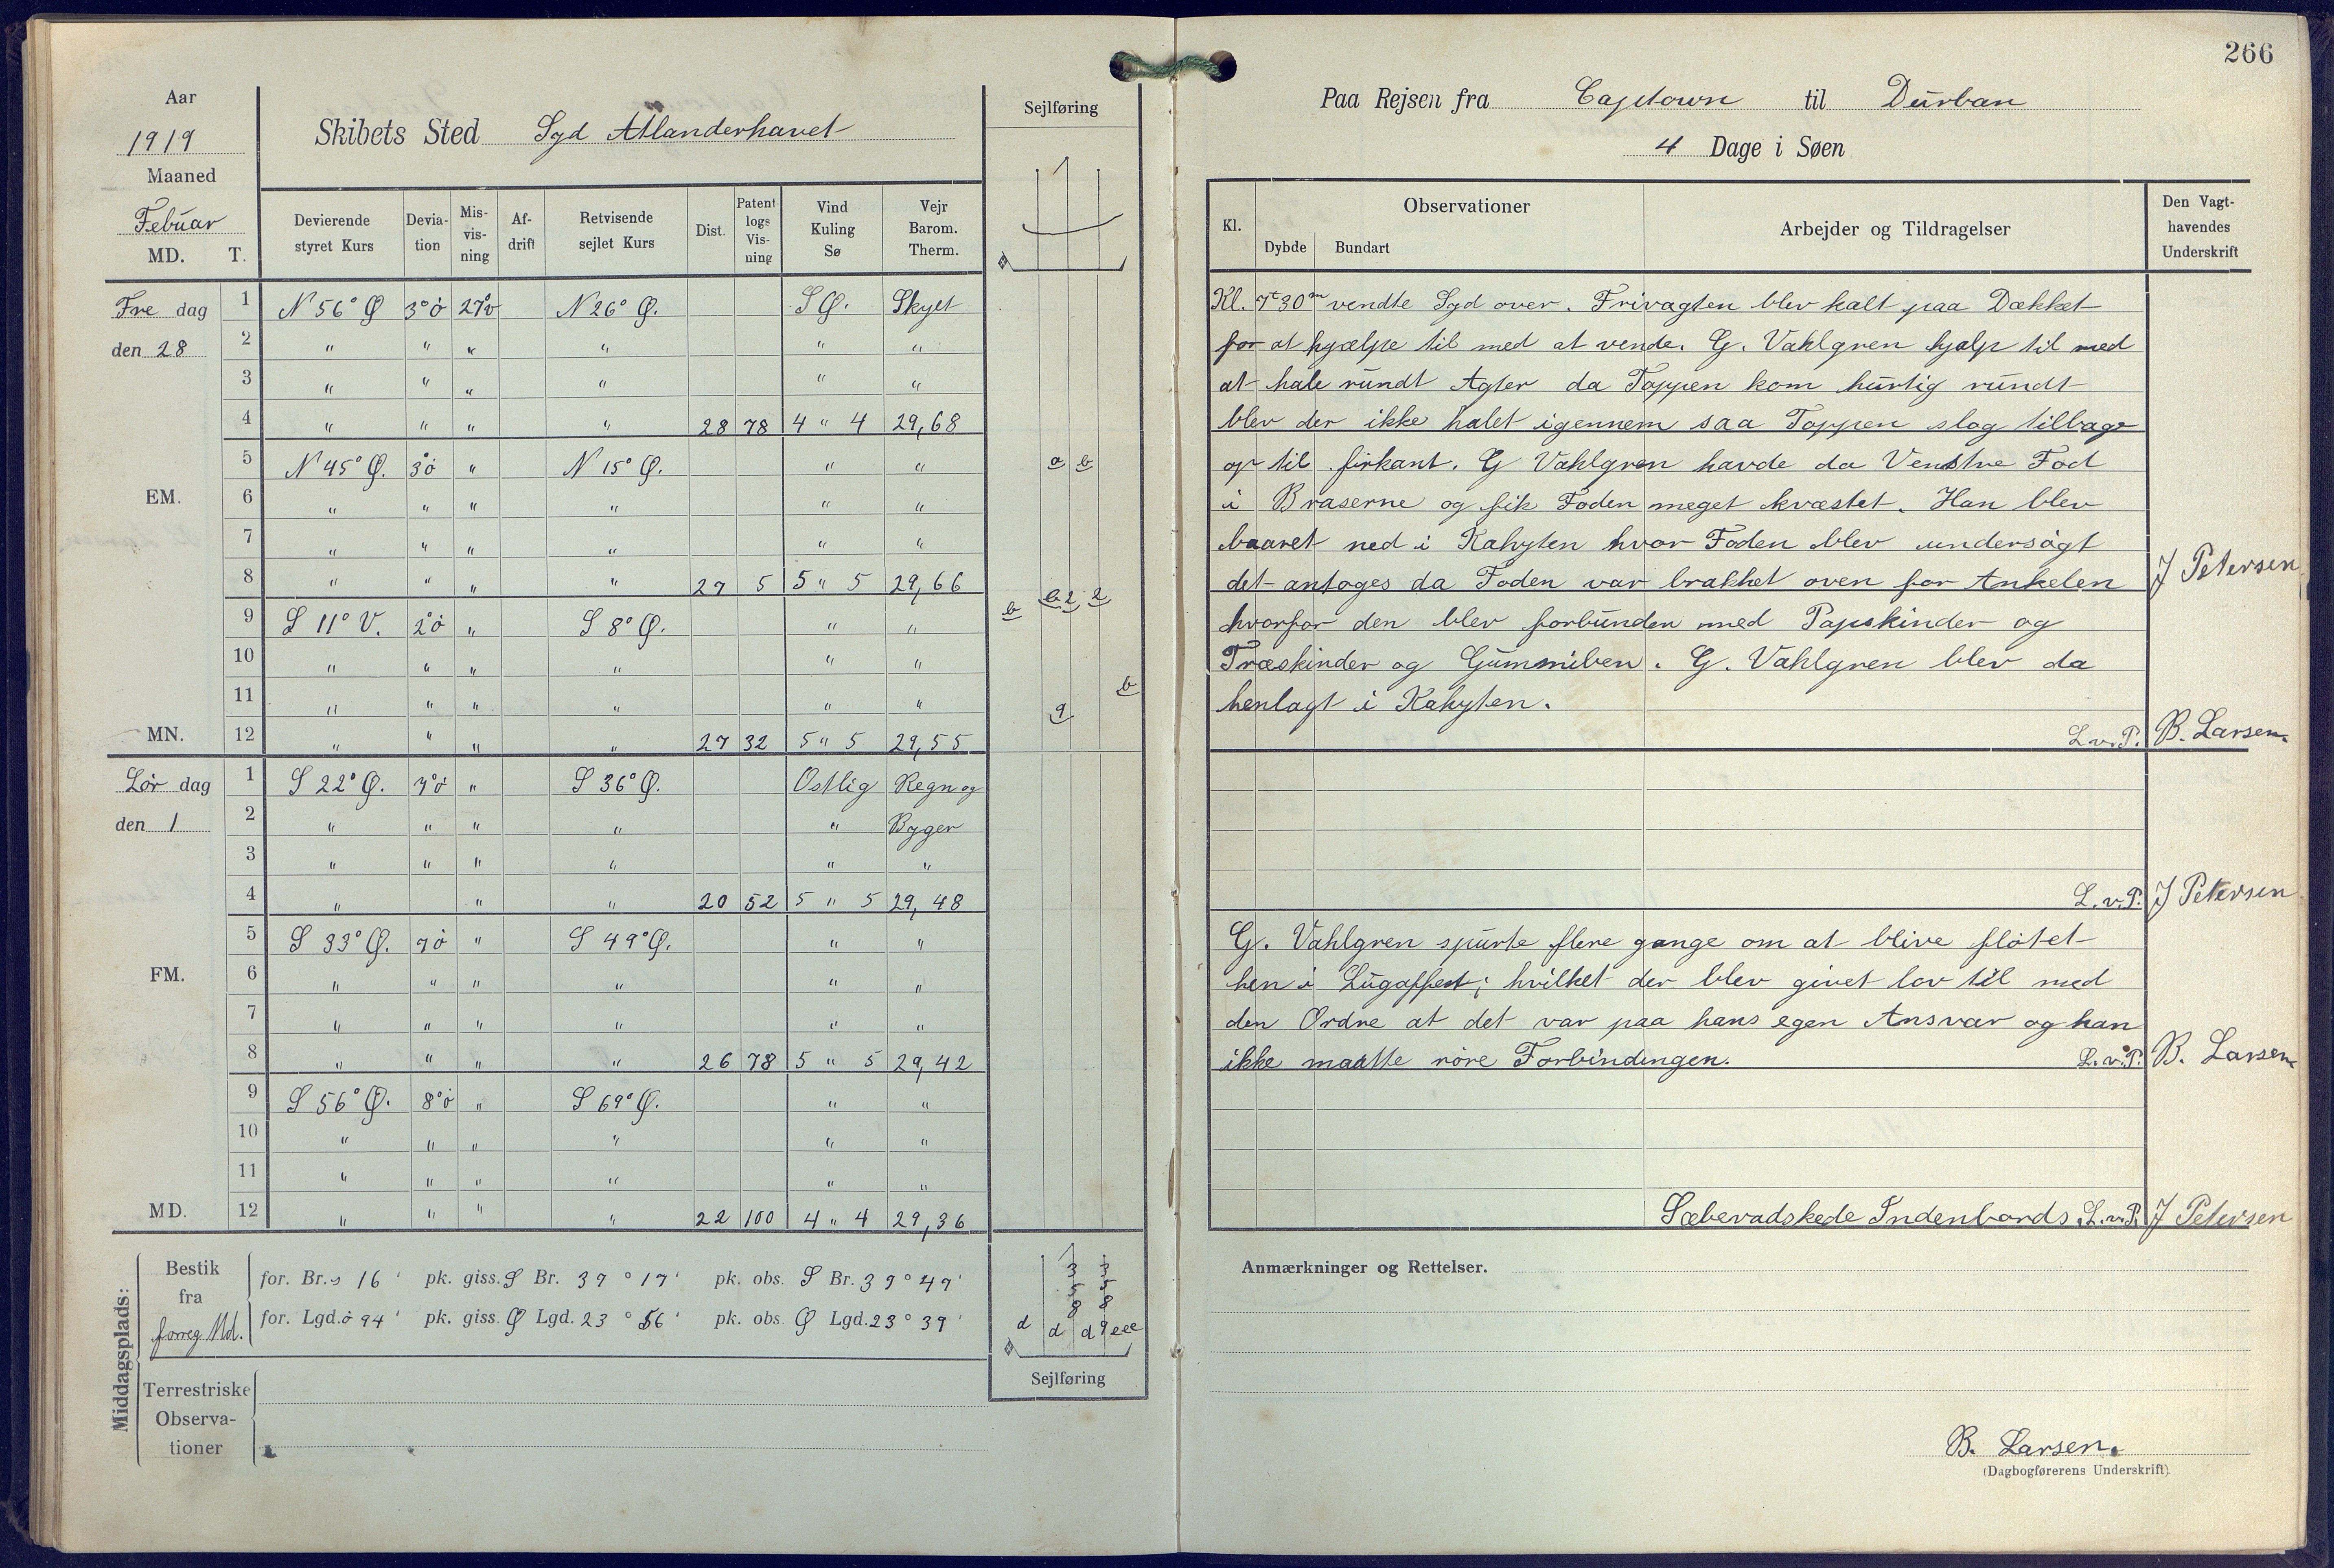 266
Aar
1919
Maaned
Febuar
MD. T.
Skibets Sted Syd Atlanderhavet
Sejlføring
Devierende styret Kurs
Devia-tion
Mis-vis-ning
Af-drift
Retvisende sejlet Kurs
Dist.
Patent logs Vis-ning
Vind Kuling Sø
Vejr Barom. Therm.
Fre dag 1 N 56° Ø 3° ö 27° v N 26° Ø. S Ø. Skyet
den 28 2 " " " " " "
3 " " " " " "
4 " " " " 28 78 4 " 4 29,68
5 N 45° Ø. 3° ö " N 15° Ø. " " a b
EM. 6 " " " " " "
7 " " " " " "
8 " " " " 27 5 5 " 5 29,66
b b 2 2
9 S 11° V. 2° ö " S 8° Ø. " "
10 " " " " " "
11 " " " " " " b
9
MN. 12 " " " " 27 32 5 " 5 29,55
Lör dag 1 S 22° Ø. 7° ö " S 36° Ø. Ostlig Regn og
den 1 2 " " " " " Byger
3 " " " " " "
4 " " " 20 52 5 " 5 29,48
5 S 33° Ø. 7 ö " S 49° Ø. " "
FM. 6 " " " " " "
7 " " " " " "
8 " " " " 26 78 5 " 5 29,42
9 S 56° Ø. 8° ö " S 69° Ø. " "
10 " " " " " "
11 " " " " " "
MD. 12 " " " " 22 100 4 " 4 29,36
Middagsplads:
Bestik fra forreg Md.
for. Br. s 16 ' pk. giss. S Br. 37 ° 17 ' pk. obs. S Br. 39 ° 47 '
for. Lgd. ö 94 ' pk. giss. Ø Lgd. 23 ° 56 ' pk. obs. Ø Lgd. 23 ° 39 '
3 3
5 5
8 8
d d d 9 eee
Sejlføring
Terrestriske
Observa-
tioner
Paa Rejsen fra Captown til Durban
4 Dage i Søen
Kl.
Observationer
Dybde Bundart
Arbejder og Tildragelser
Den Vagt-havendes Underskrift
Kl. 7t 30m vendte Syd over. Frivagten blev kalt paa Dækket
for at hjælpe til med at vende. G. Vahlgren hjalp til med
at hale rundt Agter da Toppen kom hurtig rundt
blev der ikke halet igennem saa Toppen slog tilbage
op til firkant. G Vahlgren havde da Venstre Fod
i Braserne og fik Foden meget kvæstet. Han blev
baaret ned i Kahyten hvor Foden blev undersögt
det antoges da Foden var brækket oven for Ankelen J Petersen
hvorfor den blev forbunden med Papskinder og
Træskinder og Gummiben. G. Vahlgren blev da
henlagt i Kahyten.
L.v.P. B. Larsen.
L.v.P. J Petersen
G. Vahlgren spurte flere gange om at blive flötet
hen i Lugaffet; hvilket der blev givet lov til med
den Ordre at det var paa hans egen Ansvar og han
ikke maatte röre Forbindingen. L.v.P. B. Larsen
Sæbevadskede Indenbords. L.v.P. J Petersen
Anmærkninger og Rettelser.
B. Larsen.
(Dagbogførerens Underskrift)